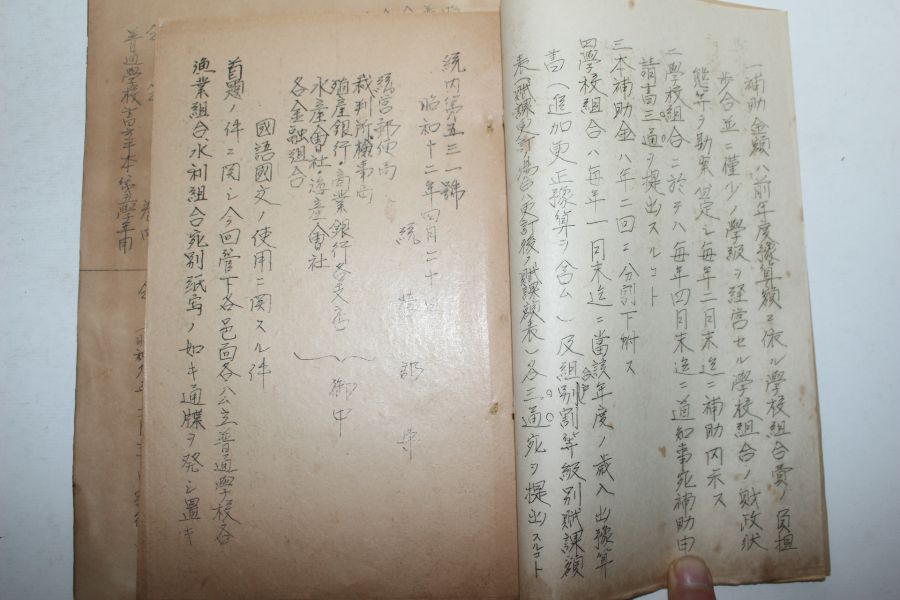 一 補助金額ハ前年度豫算額ニ依ル學校組合費ノ負担
歩合並ニ僅少ノ學級ヲ経営セル學校組合ノ財政状
態等ヲ勘案算定シ毎年二月末迄ニ補助内示ス
二 學校組合ニ於テハ毎年四月末迄ニ道知事宛補助申
請書三通ヲ提出スルコト
三 本補助金ハ年二回ニ分割下附ス
四 學校組合ハ毎年一月末迄ニ當該年度ノ歳入出豫算
書(追加更正豫算ヲ含ム)及組合別割等級別賦課額
表(賦課更訂ノ場合ハ更訂後ノ賦課額表)各三通宛ヲ提出スルコト
統内第五三一號
昭和十二年四月二十
統 郡守
統営郵便局
裁判所検事局
殖産銀行・商業銀行各支店
水産會社・海産會社
各金融組合
御中
國語國文ノ使用ニ関スル件
首題ノ件ニ関シ今回管下各邑面各公立普通學校各
漁業組合、水利組合宛別紙写ノ如キ通牒ヲ発シ置キ
普通學校書方手本第五學年用